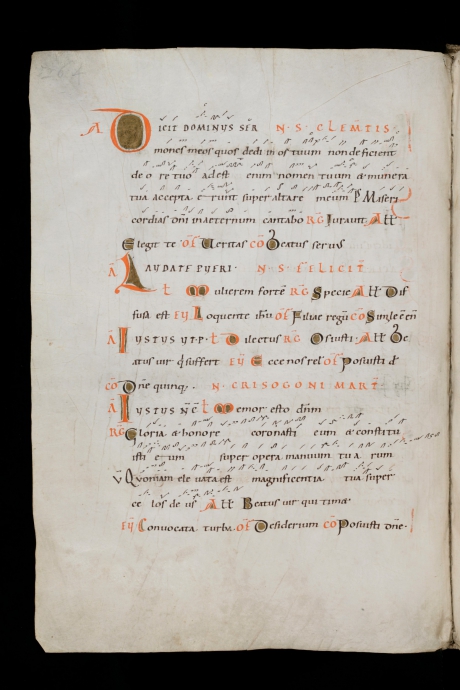 A DICIT DOMINUS SER̄ N · S · CLEMTIS
mones meos quos dedi in os tuum non deficient
de o re tuo ad est enim nomen tuum & munera
tua accepta erunt super altare meum Ps Miseri
cordias dn̄i in aeternum cantabo RG Iurauit All
Elegit te OF Ueritas CO Beatus seruus
A LAUDATE PUERI · N · S · FELICIT
t Mulierem fortē RG Specie All Dif
fusa est EV Loquente ihu OF Filiae regū CO Simile ē
A IUSTUS UT · P · t Dilectus RG Os iusti · All Be
atus uir q̄ suffert EV Ecce nos rel OF Posuisti d
CO Dn̄e quinq; · N · CRISOGONI MART
A IUSTUS N̄C t Memor esto dūm
RG Gloria & honore coronasti eum & constitu
isti e um super opera manuum tua rum
V Quoniam ele uata est magnificentia tua super
ce los de us All Beatus uir qui timet
EV Conuocata turba OF Desiderium CO Posuisti dn̄e ·